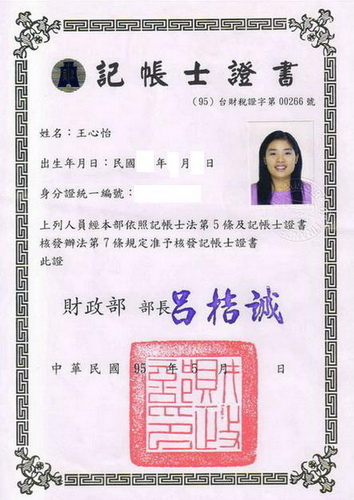 記帳士證書
（95）台財稅證字第00266號
姓名：王心怡
出生年月日：民國 年 月 日
身分證統一編號：
上列人員經本部依照記帳士法第5條及記帳士證書
核發辦法第7條規定准予核發記帳士證書
此證
財政部 部長 呂桔誠
中華民國 95 年 5 月 日